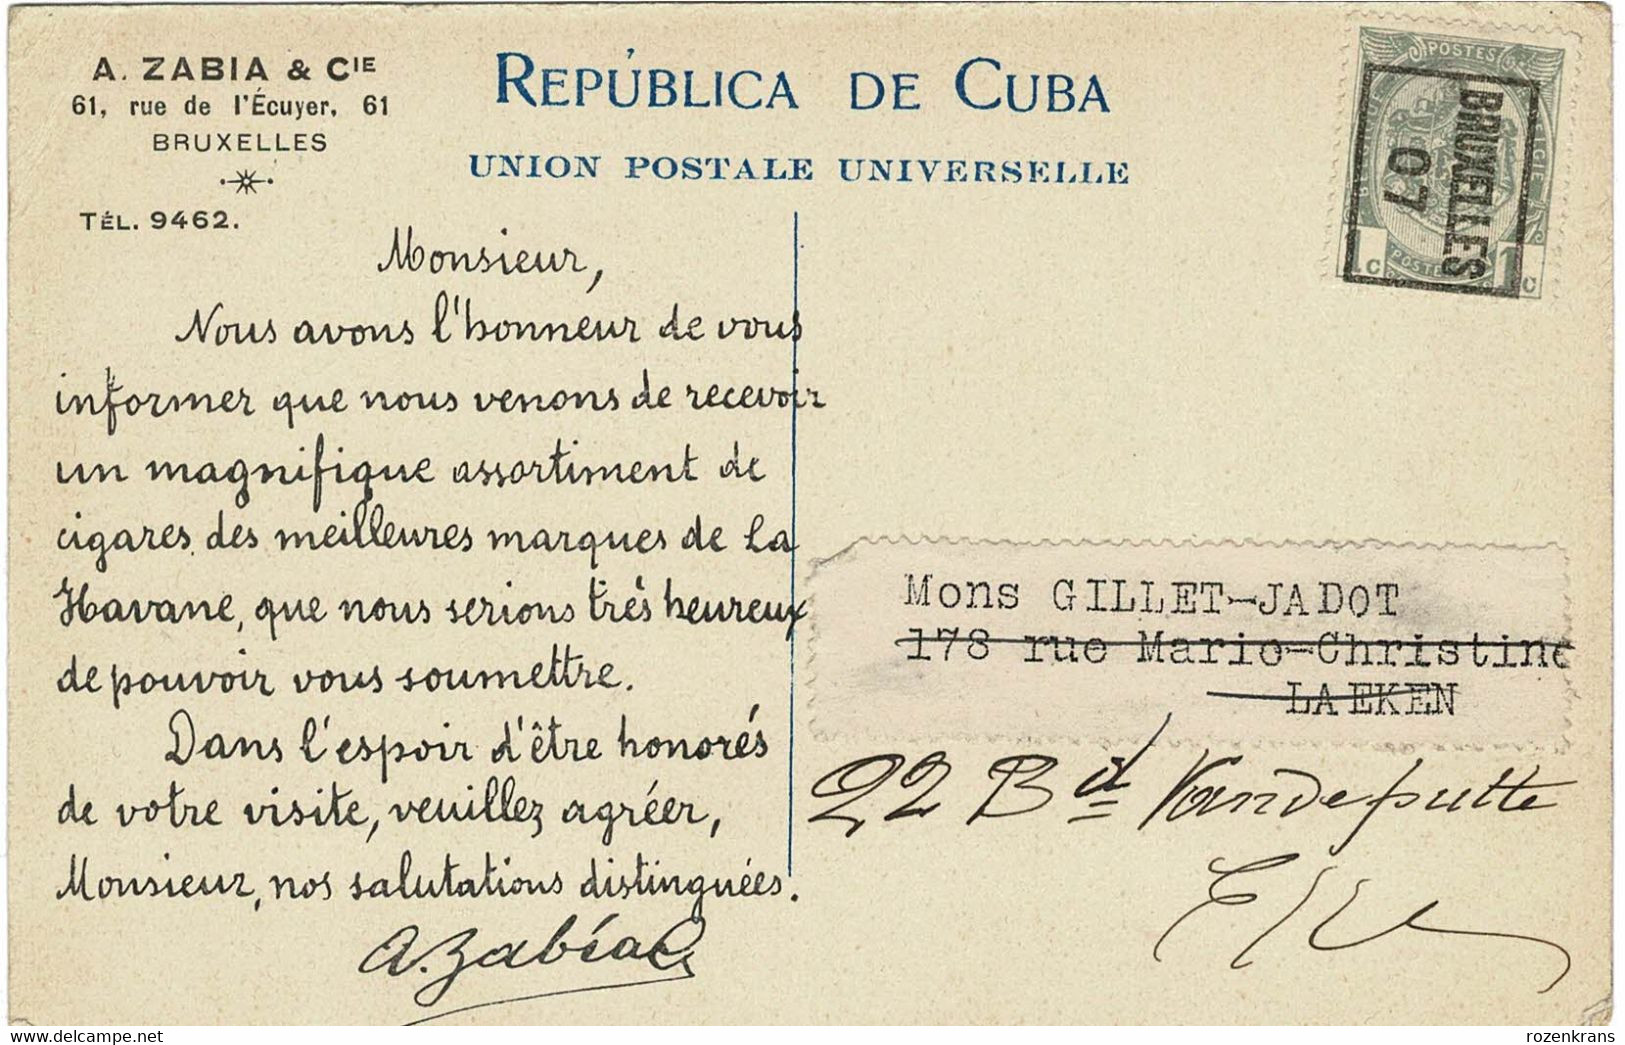 A. ZABIA & CIE
61, rue de l'Écuyer, 61
BRUXELLES
TÉL. 9462.
REPÚBLICA DE CUBA
UNION POSTALE UNIVERSELLE
POSTES
BRUXELLES
07
1c
1c
Monsieur,
Nous avons l'honneur de vous
informer que nous venons de recevoir
un magnifique assortiment de
cigares des meilleures marques de La
Havane, que nous serions très heureux
de pouvoir vous soumettre.
Dans l'espoir d'être honorés
de votre visite, veuillez agréer,
Monsieur, nos salutations distinguées.
A. Zabia
Mons GILLET-JADOT
178 rue Marie-Christine
LAEKEN
22 Bd Vandeputte
www.delcampe.net
rozenkrans